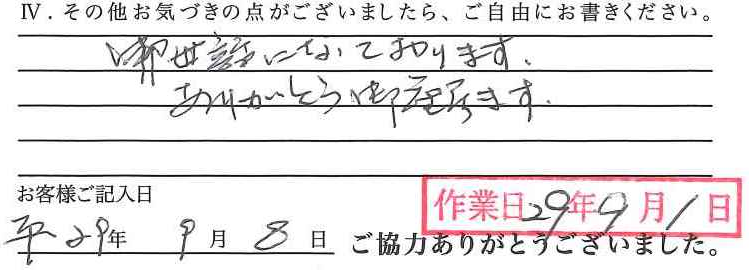 Ⅳ．その他お気づきの点がございましたら、ご自由にお書きください。
御世話になっております.
ありがとう御座居ます.
お客様ご記入日
作業日29年9月1日
平29年 9月 8日 ご協力ありがとうございました。